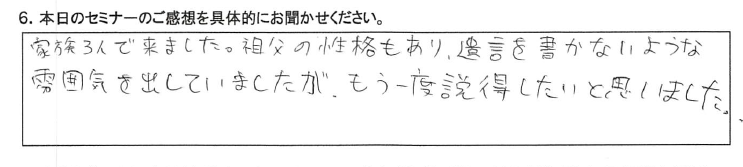 6. 本日のセミナーのご感想を具体的にお聞かせください。
家族3人で来ました。祖父の性格もあり、遺言を書かないような
雰囲気を出していましたが、もう一度説得したいと思いました。